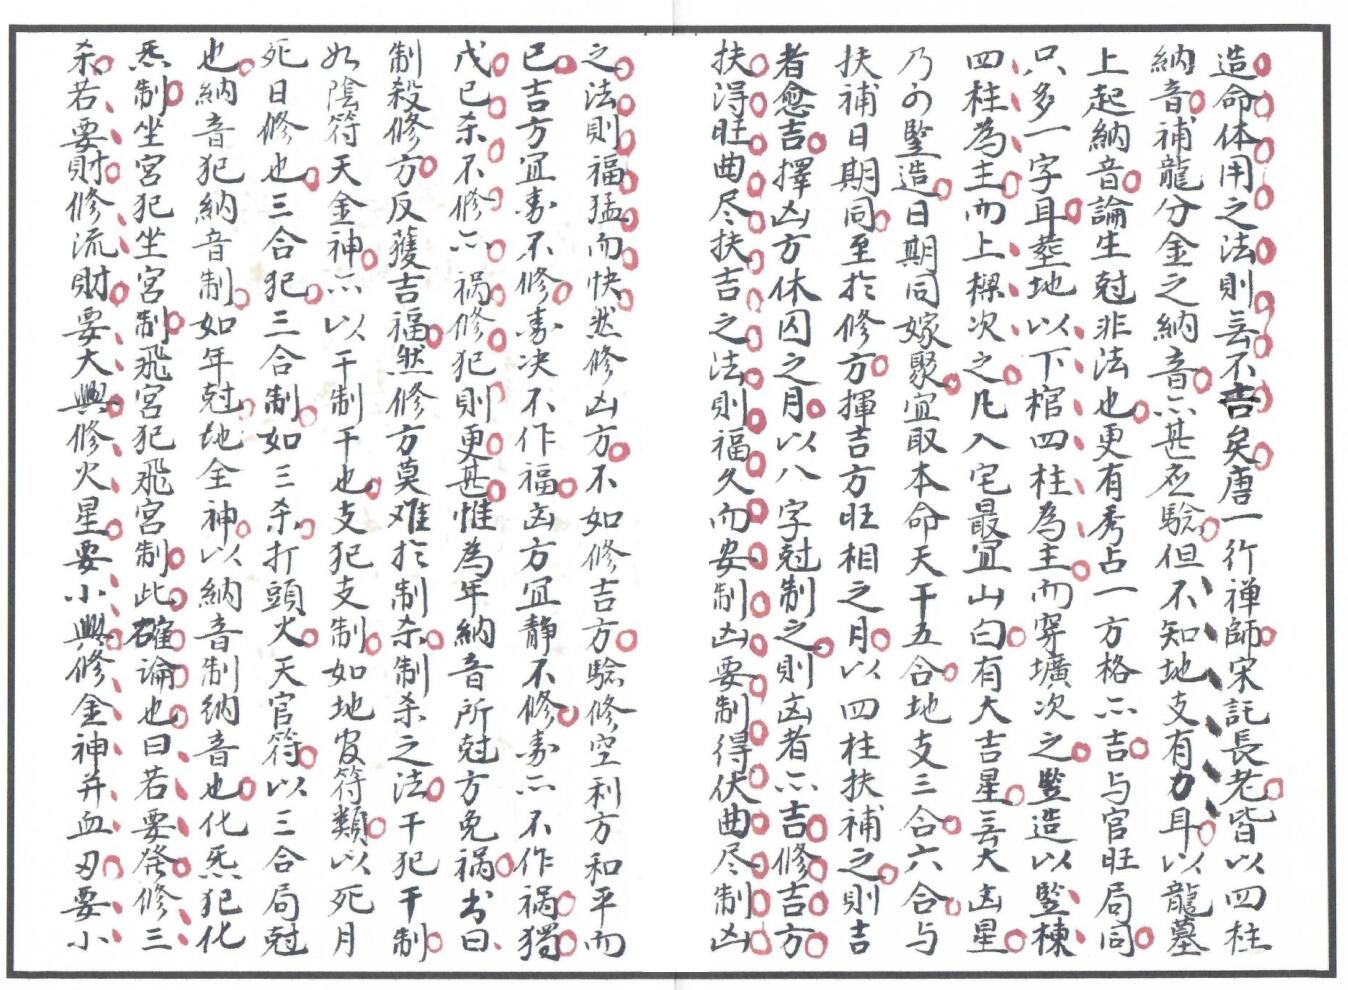 造命体用之法則無不吉矣唐一行禅師宋託長老皆以四柱
納音補龍分金之納音亦甚应驗但不知地支有力耳以龍墓
上起納音論生尅非法也更有秀占一方格亦吉与官旺局同
只多一字耳塟地以下棺四柱為主而穿壙次之竪造以竪棟
四柱為主而上樑次之凡入宅最宜山向有大吉星無大凶星
乃可竪造日期同嫁聚宜取本命天干五合地支三合六合与
扶補日期同至於修方揮吉方旺相之月以四柱扶補之則吉
者愈吉擇凶方休囚之月以八字尅制之則凶者亦吉修吉方
扶得旺曲尽扶吉之法則福久而安制凶要制得伏曲尽制凶
之法則福猛而快然修凶方不如修吉方驗修空利方和平而
已吉方宜寿不修寿决不作福凶方宜静不修寿亦不作禍獨
戊已杀不修亦禍修犯則更甚惟為年納音所尅方免禍书曰
制殺修方反獲吉福然修方莫难於制杀制杀之法干犯干制
如陰符天金神亦以干制干也支犯支制如地官符類以死月
死日修也三合犯三合制如三杀打頭火天官符以三合局尅
也納音犯納音制如年尅地全神以納音制納音也化炁犯化
炁制坐宮犯坐宮制飛宮犯飛宮制此確論也曰若要發修三
杀若要財修流財要大興修火星要小興修金神并血刃要小